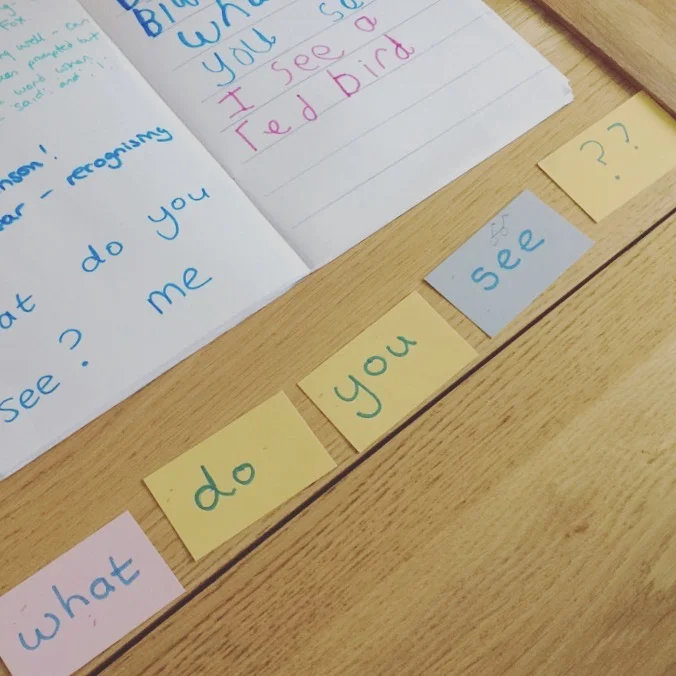 Fox
well - Dan
when prompted but
word when
said: and
nson!
ar - recognising
at do you
see? me
wha
you se
I see a
red bird
what do you see ??